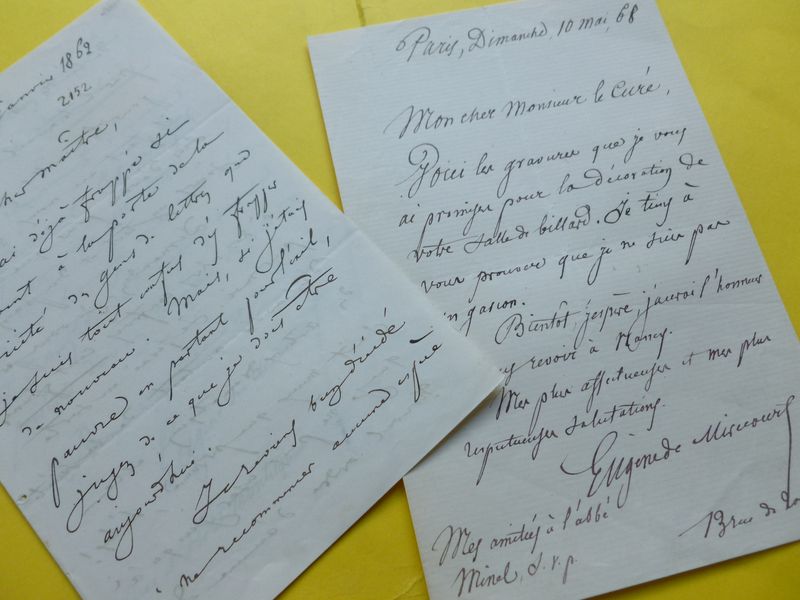 janvier 1862
2152
cher maître,
ai déjà frappé si
à la porte de la
des gens de lettres que
je suis tout confus d'y frapper
de nouveau. Mais, si j'étais
pauvre en partant pour l'exil,
jugez de ce que je dois être
aujourd'hui.
Je reviens bien décidé
ne recommencer aucune espèce
Paris, Dimanche, 10 mai, 68
Mon cher Monsieur le Curé,
Voici les gravures que je vous
ai promises pour la décoration de
votre salle de billard. Je tiens à
vous prouver que je ne suis pas
un gascon.
Bientôt, j'espère, j'aurai l'honneur
revoir à Nancy.
Mes plus affectueuses et mes plus
respectueuses salutations.
Eugène de Mirecourt
Mes amitiés à l'abbé
Minel, s.v.p.
13 rue de